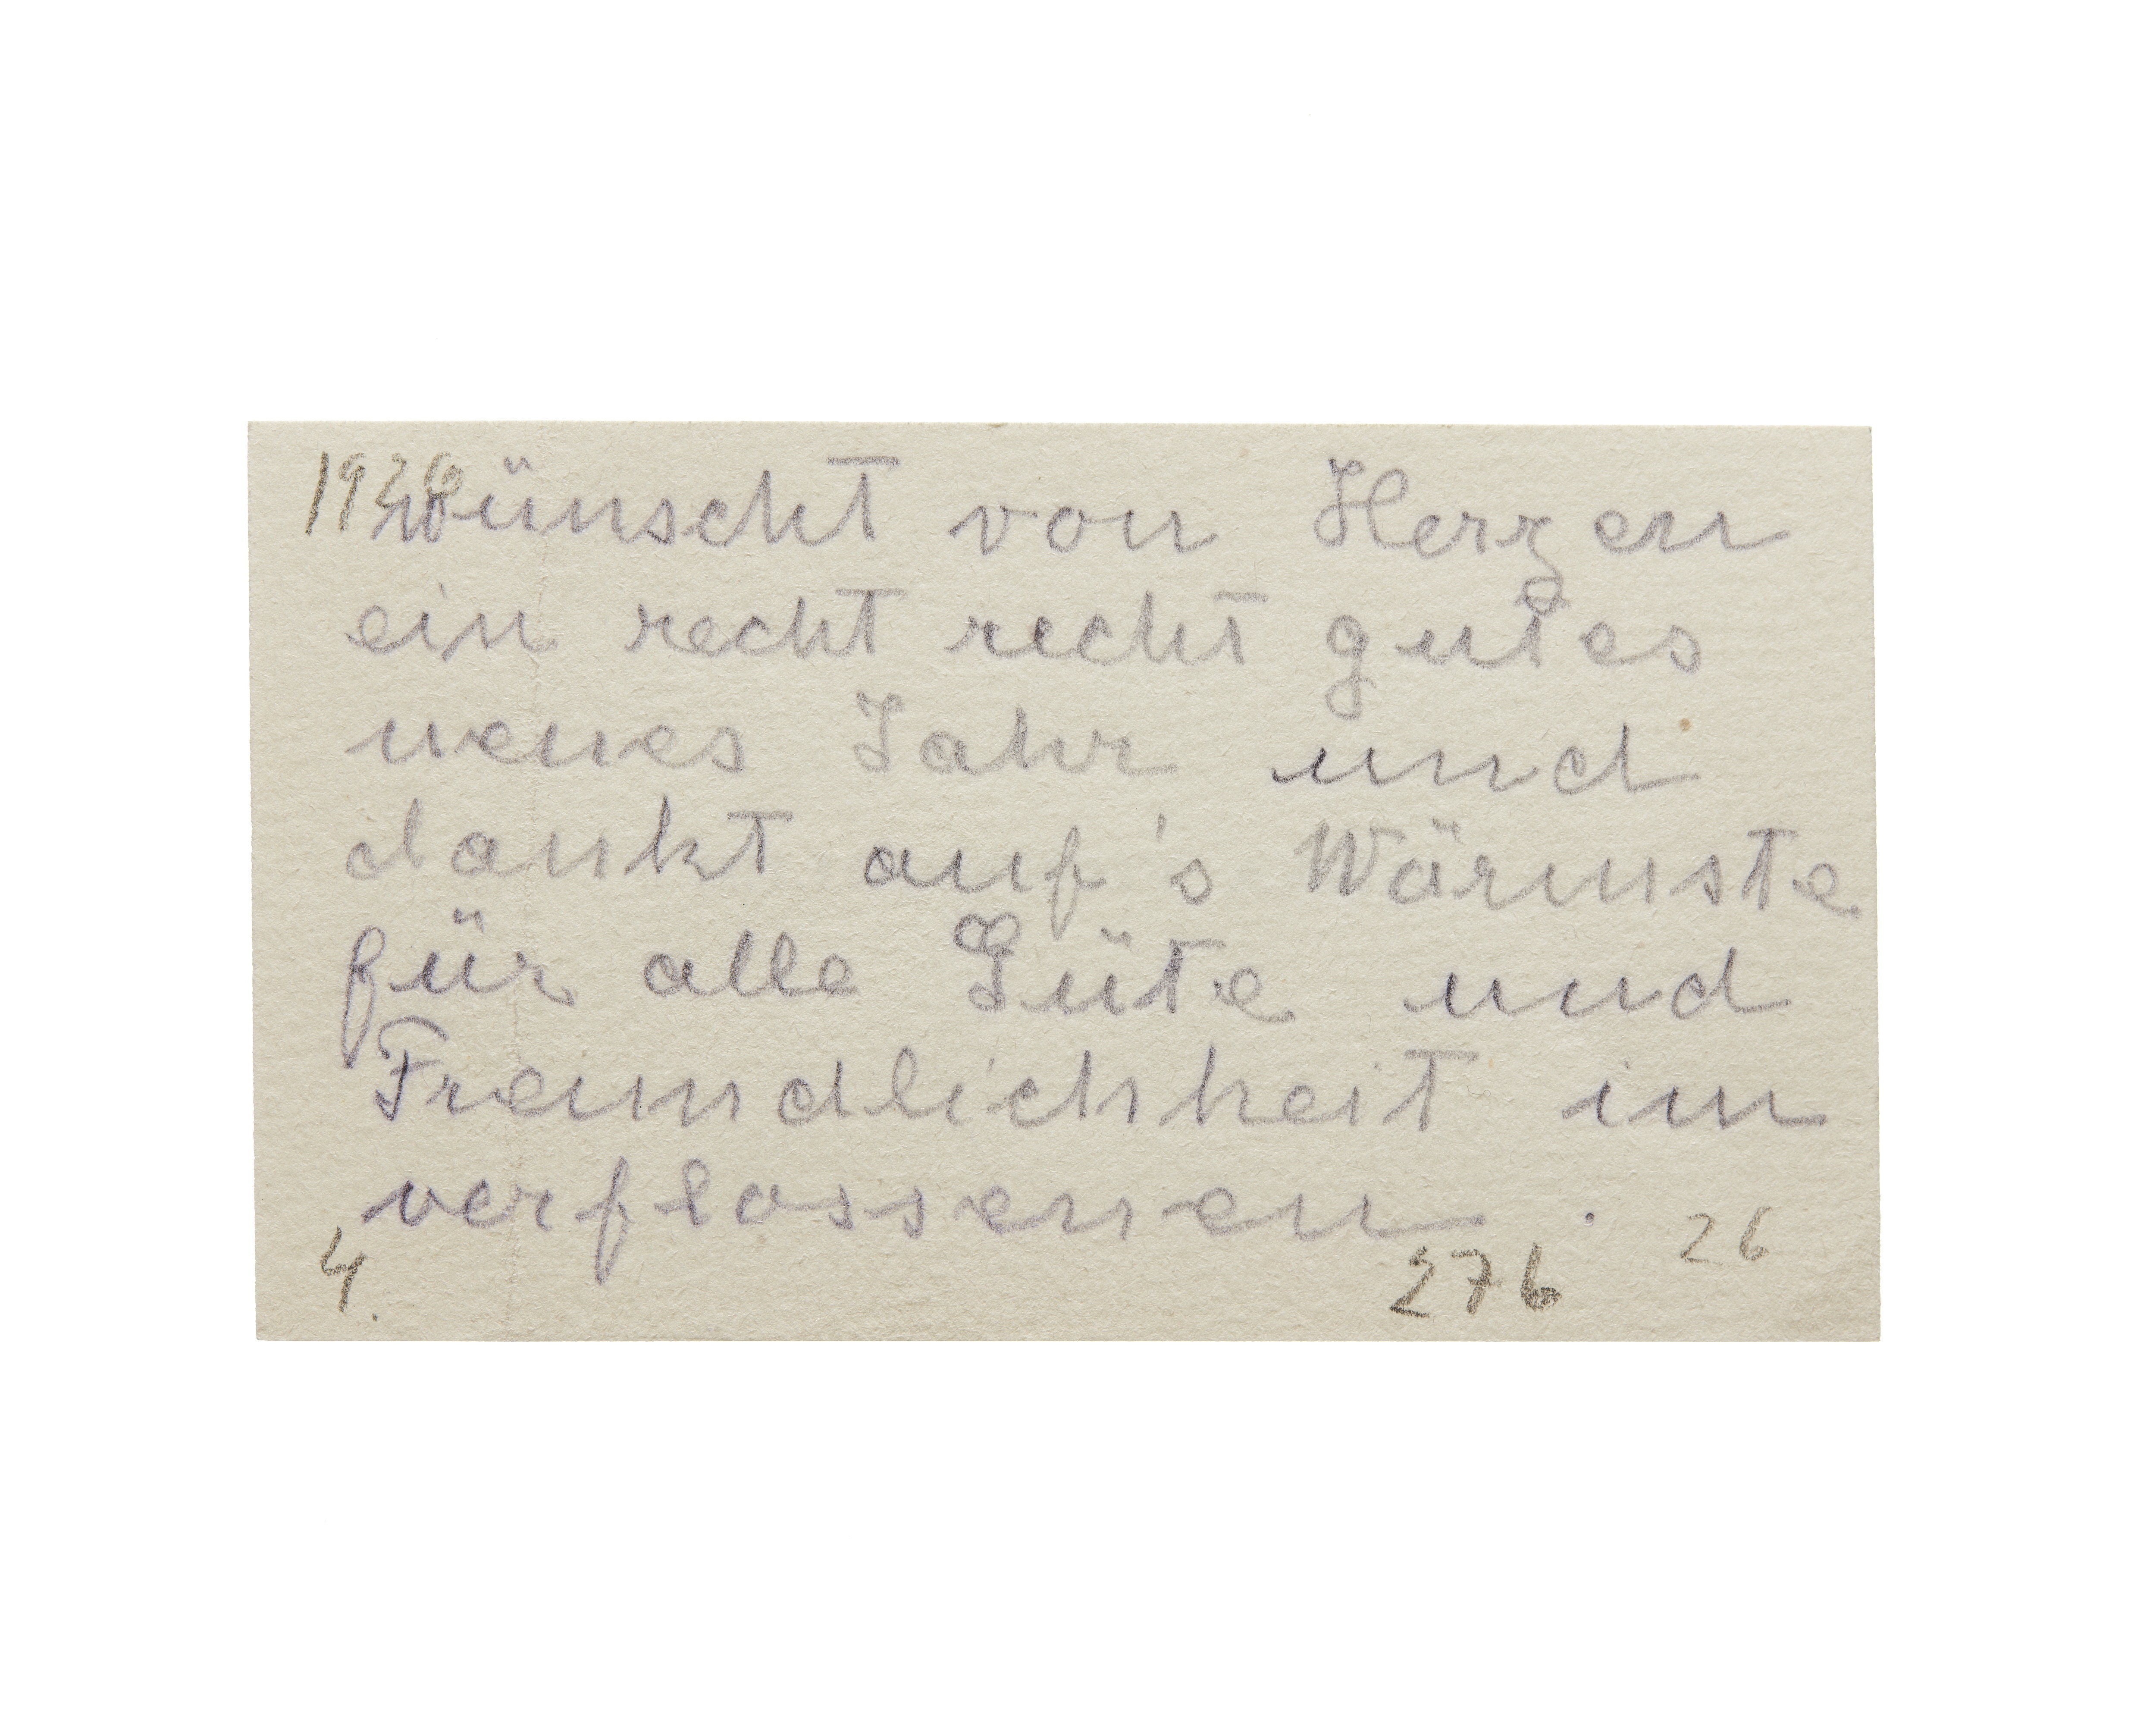 1926
wünscht von Herzen
ein recht recht gutes
neues Jahr und
dankt auf's Wärmste
für alle Güte und
Freundlichkeit im
verflossenen.
4.
276
26